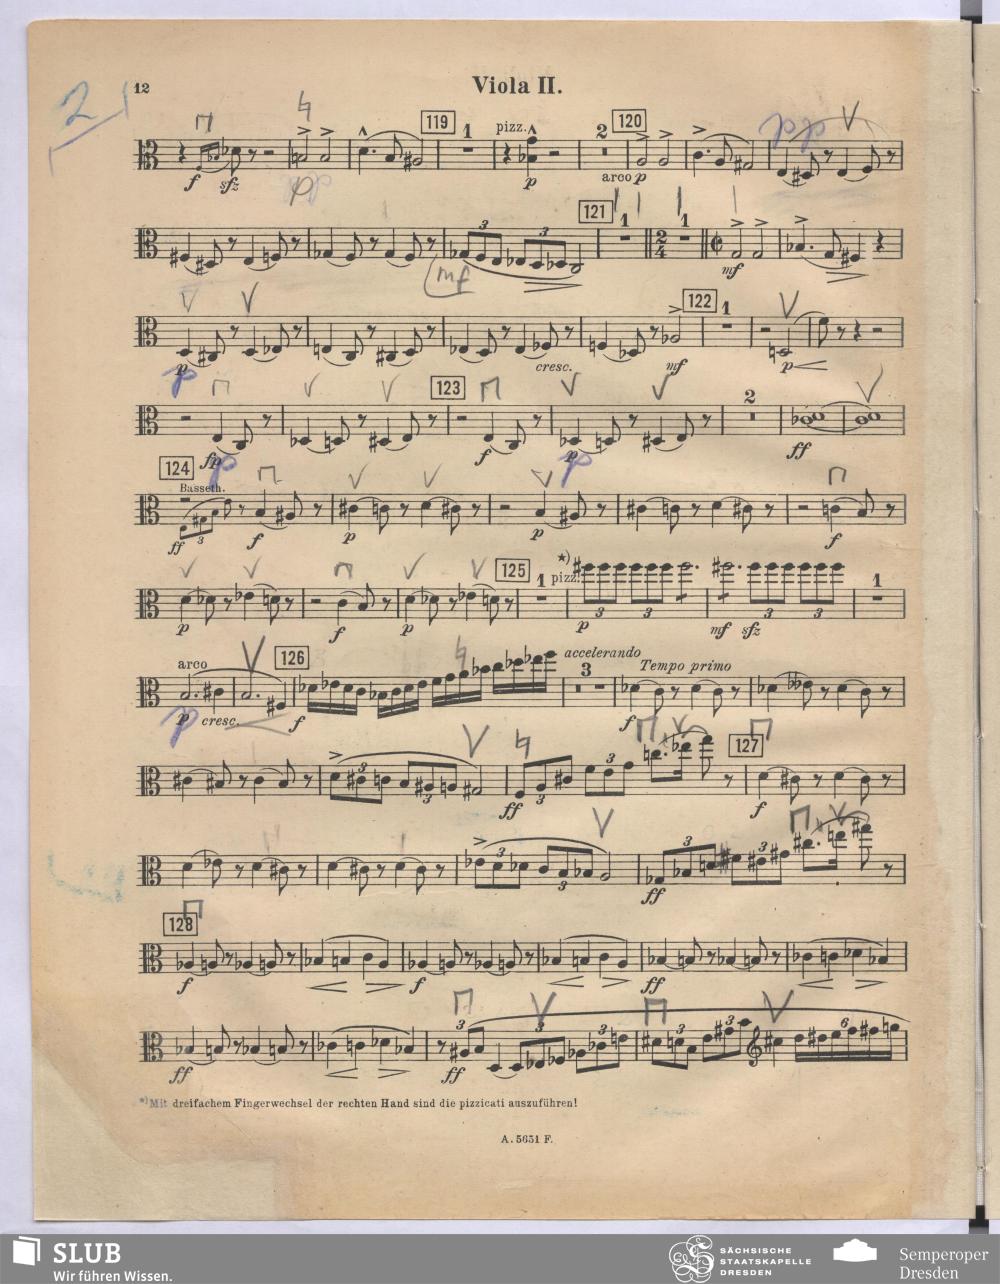 2
12
Viola II.
119
1
pizz.
2
120
f
sfz
p
arco p
121
1
1
3
3
mf
mf
122
1
p
cresc.
mf
p
p
123
2
fp
f
p
ff
p
p
124
Basseth.
3
ff
f
p
p
f
125
1
pizz.
*)
3
3
3
3
1
p
f
p
p
mf
sfz
arco
126
accelerando
3
Tempo primo
p
cresc.
f
f
p
3
3
3
3
127
ff
f
3
3
3
3
ff
128
f
f
ff
3
3
3
3
3
6
ff
ff
*) Mit dreifachem Fingerwechsel der rechten Hand sind die pizzicati auszuführen!
A. 5651 F.
SLUB
Wir führen Wissen.
SÄCHSISCHE
STAATSKAPELLE
DRESDEN
Semperoper
Dresden